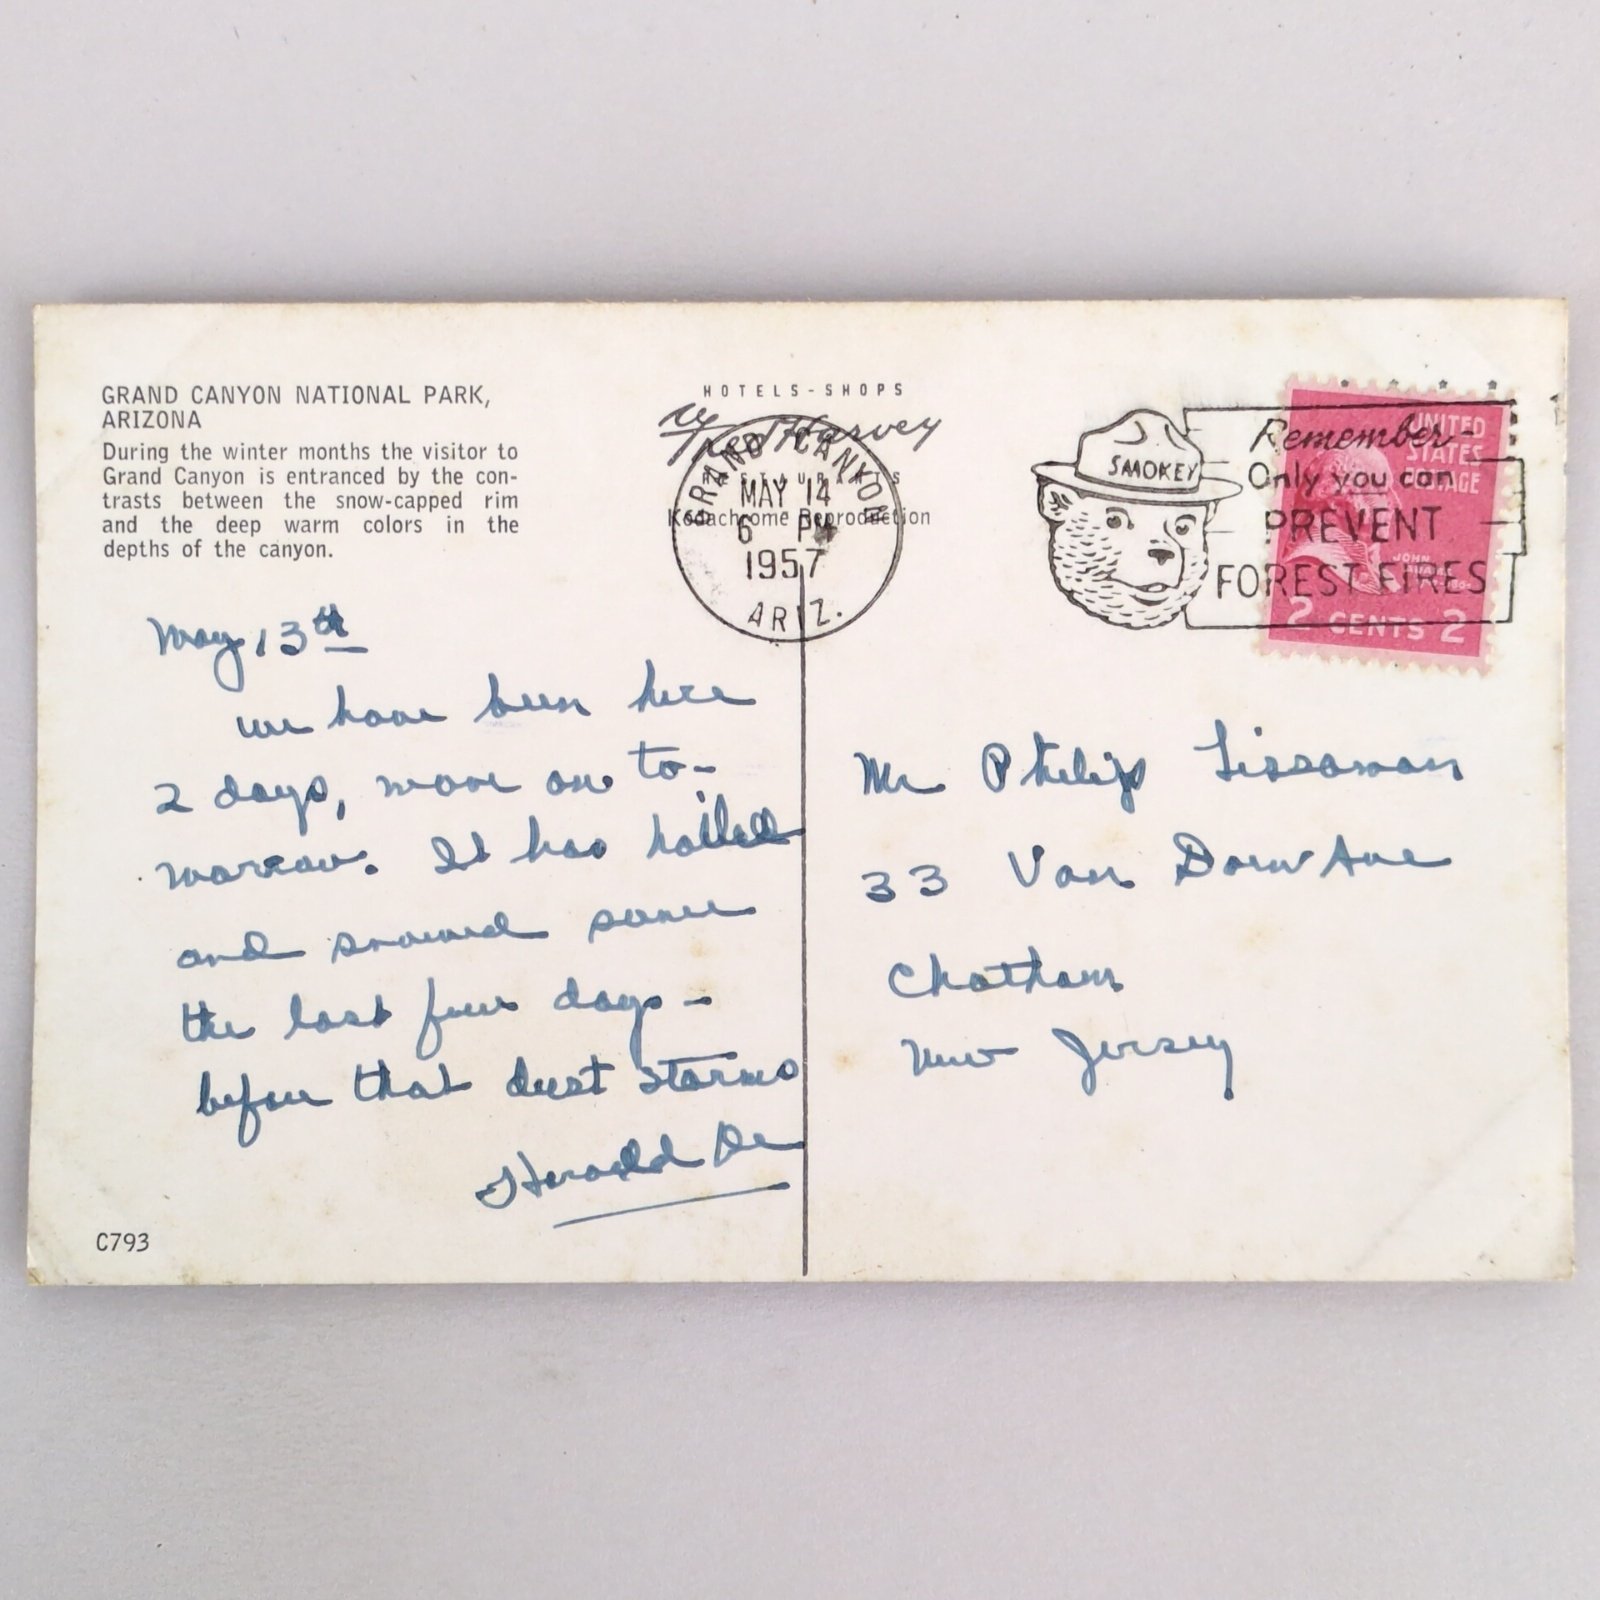 GRAND CANYON NATIONAL PARK,
ARIZONA
During the winter months the visitor to
Grand Canyon is entranced by the con-
trasts between the snow-capped rim
and the deep warm colors in the
depths of the canyon.
May 13th
we have been here
2 days, move on to-
morrow. It has hailed
and snowed some
the last few days -
before that dust storms
Harold De
C793
HOTELS-SHOPS
Fred Harvey
Kodachrome Reproduction
GRAND CANYON
MAY 14
6 PM
1957
ARIZ.
SMOKEY
Remember-
Only you can
PREVENT
FOREST FIRES
UNITED
STATES
POSTAGE
JOHN
2 CENTS 2
Mr Philip Lissaman
33 Van Dorn Ave
Chatham
New Jersey